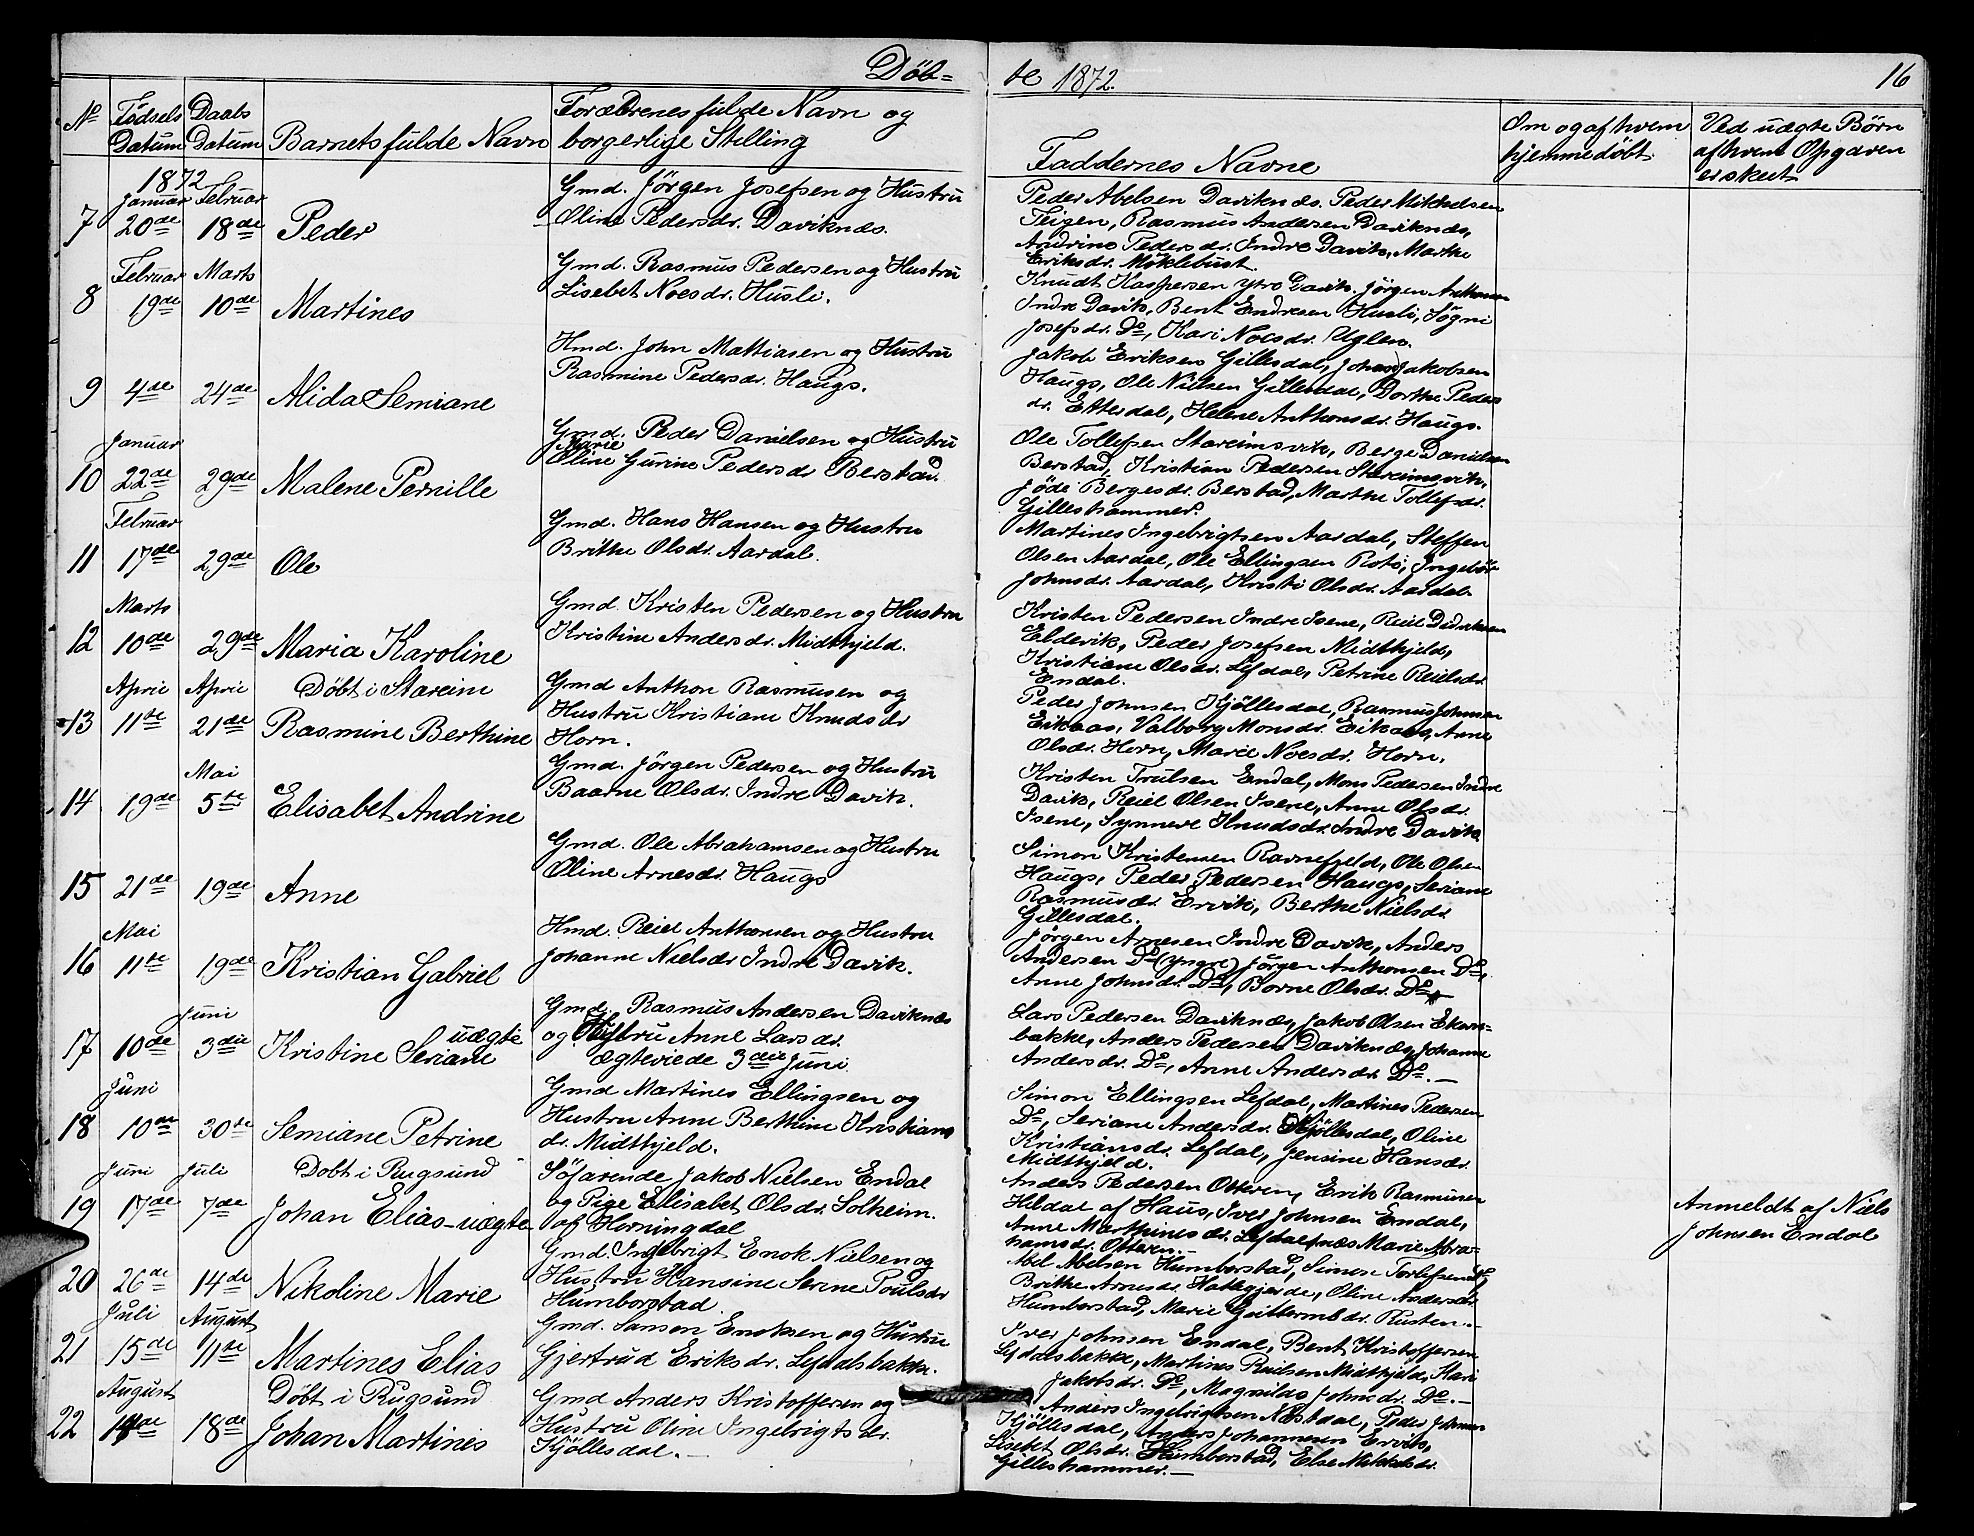 Døb=
te 1872.
16
No
Fødsels
Datum
Daabs
Datum
Barnets fulde Navn
Forældrenes fulde Navn og
borgerlige Stilling
Faddernes Navne
Om og af hvem
hjemmedøbt
Ved uægte Børn
af hvem Opgaven
er skeet
1872
Januar Februar
7 20de 18de Peder
Gmd. Jörgen Josefsen og Hustru
Oline Pedersdr. Daviknæs.
Peder Abelsen Daviknæs. Peder Mikkelsen
Teigen, Rasmus Andersen Daviknæs,
Andrine Pedersdr. Indre Davik, Marthe
Eriksdr. Myklebust.
Februar Marts
8 19de 10de Martines
Gmd. Rasmus Pedersen og Hustru
Lisebet Noesdr. Husli.
Knudt Kaspersen ytre Davik. Jörgen Anthonsen
Indre Davik, Bent Endresen Husli, Søgni
Josefsdr. Do, Kari Noesdr. Uglen.
9 4de 24de Alida Semiane
Hmd. John Mattiasen og Hustru
Rasmine Pedersdr. Haugs.
Jakob Eriksen Gillesdal, Johan Jakobsen
Haugs, Ole Nielsen Gillesdal, Dorthe Peders
dr. Ettesdal, Helene Anthonsdr. Haugs.
Januar
10 22de 29de Malene Pernille
Gmd. Peder Danielsen og Hustru
Marie
Oline Gurine Pedersd Berstad.
Ole Tollefsen Stareimsvik, Berge Danielsen
Berstad, Kristian Pedersen Stareimsvik,
Jöde Bergesdr. Berstad, Marthe Tollefsdr.
Gilleshammer.
Februar
11 17de 29de Ole
Gmd. Hans Hansen og Hustru
Brithe Olsdr. Aardal.
Martines Ingebrigtsen Aardal, Steffen
Olsen Aardal, Ole Ellingsen Rotö, Ingebör
Johnsdr. Aardal, Kristi Olsdr. Aardal.
Marts
12 10de 29de Maria Karoline
Gmd. Kristen Pedersen og Hustru
Kristine Andersdr. Midthjeld.
Kristen Pedersen Indre Isene, Reiel Didriksen
Eldevik, Peder Josefsen Midthjeld,
Kristiane Olsdr. Lefdal, Petrine Reielsdr.
Endal.
April April Döbt i Stareim
13 11te 21de Rasmine Berthine
Gmd Anthon Rasmusen og
Hustru Kristiane Knudsdr
Horn.
Peder Johnsen Hjöllesdal, Rasmus Johnsen
Eikaas, Valborg Monsdr. Eikaas, Anne
Olsdr. Horn, Marie Noesdr. Horn.
Mai
14 19de 5te Elisabet Andrine
Gmd. Jörgen Pedersen og Hustru
Baarne Olsdr. Indre Davik.
Kristen Trulsen Endal, Mons Pedersen Indre
Davik, Reiel Olsen Isene, Anne Olsdr.
Isene, Synneve Knudsdr. Indre Davik
15 21de 19de Anne
Gmd. Ole Abrahamsen og Hustru
Oline Arnesdr. Haugs
Simon Kristensen Ravnefjeld, Ole Olsen
Haugs, Peder Pedersen Haugs, Seriane
Rasmusdr. Ervik, Berthe Nielsdr.
Gillesdal.
Mai
16 11te 19de Kristian Gabriel
Hmd. Reiel Anthonsen og Hustru
Johanne Nielsdr Indre Davik.
Jörgen Arnesen Indre Davik, Anders
Andersen Do (yngre) Jörgen Anthonsen Do,
Anne Johnsdr. Do, Borne Olsdr. Do
Juni
17 10de 3die Kristine Seriane uægte
Gmd. Rasmus Andersen Daviknæs
og Hustru Anne Larsdr.
Ægteviede 3die Juni
Lars Pedersen Daviknæs, Jakob Olsen Ekorn-
bakke, Anders Pedersen Daviknæs, Johanne
Andersdr. Do, Anne Andersdr. Do.—
Juni
18 10de 30te Semiane Petrine
Gmd Martines Ellingsen og
Hustru Anne Berthine Kristians
dr. Midthjeld.
Simon Ellingsen Lefdal, Martines Pedersen
Do, Seriane Andersdr. Hjöllesdal, Oline
Kristiansdr. Lefdal, Jensine Hansdr.
Midthjeld.
Juni Juli Döbt i Rugsund
19 17de 7de Johan Elias—uægte
Söfarende Jakob Nielsen Endal
og Pige Elisabet Olsdr. Solheim
af Horningdal
Anders Pedersen Otteren, Erik Rasmusen
Hildal af Haus, Iver Johnsen Endal,
Anne Marthinesdr. Lefdalsnæs Marie Abra-
hamsdr. Otteren.—
Anmeldt af Niels
Johnsen Endal
20 26de 14de Nikoline Marie
Gmd. Ingebrigt Enok Nielsen og
Hustru Hansine Serine Poulsdr
Humborstad
Abel Abelsen Humborstad, Simon Torlefsen Do,
Brithe Arnesdr. Hatlegjerde, Oline Andersdr.
Humborstad, Marie Guttormsdr. Rusten.—
Juli August
21 15de 11te Martines Elias
Gmd. Samson Enoksen og Hustru
Gjertrud Eriksdr. Lefdalsbakke.
Iver Johnsen Endal, Bent Kristoffersen
Lefdalsbakke, Martines Reielsen Midthjeld, Kari
Jakobsdr. Do, Magnilda Johnsdr. Do.—
August Döbt i Rugsund
22 14de 18de Johan Martines
Gmd Anders Kristoffersen og
Hustru Oline Ingebrigtsdr.
Hjöllesdal.—
Anders Ingebrigtsen Næstdal, Peder Johnsen
Hjöllesdal, Anders Johannesen Ervik,
Lisebet Olsdr. Humborstad, Else Mikkelsdr.
Gilleshammer.—